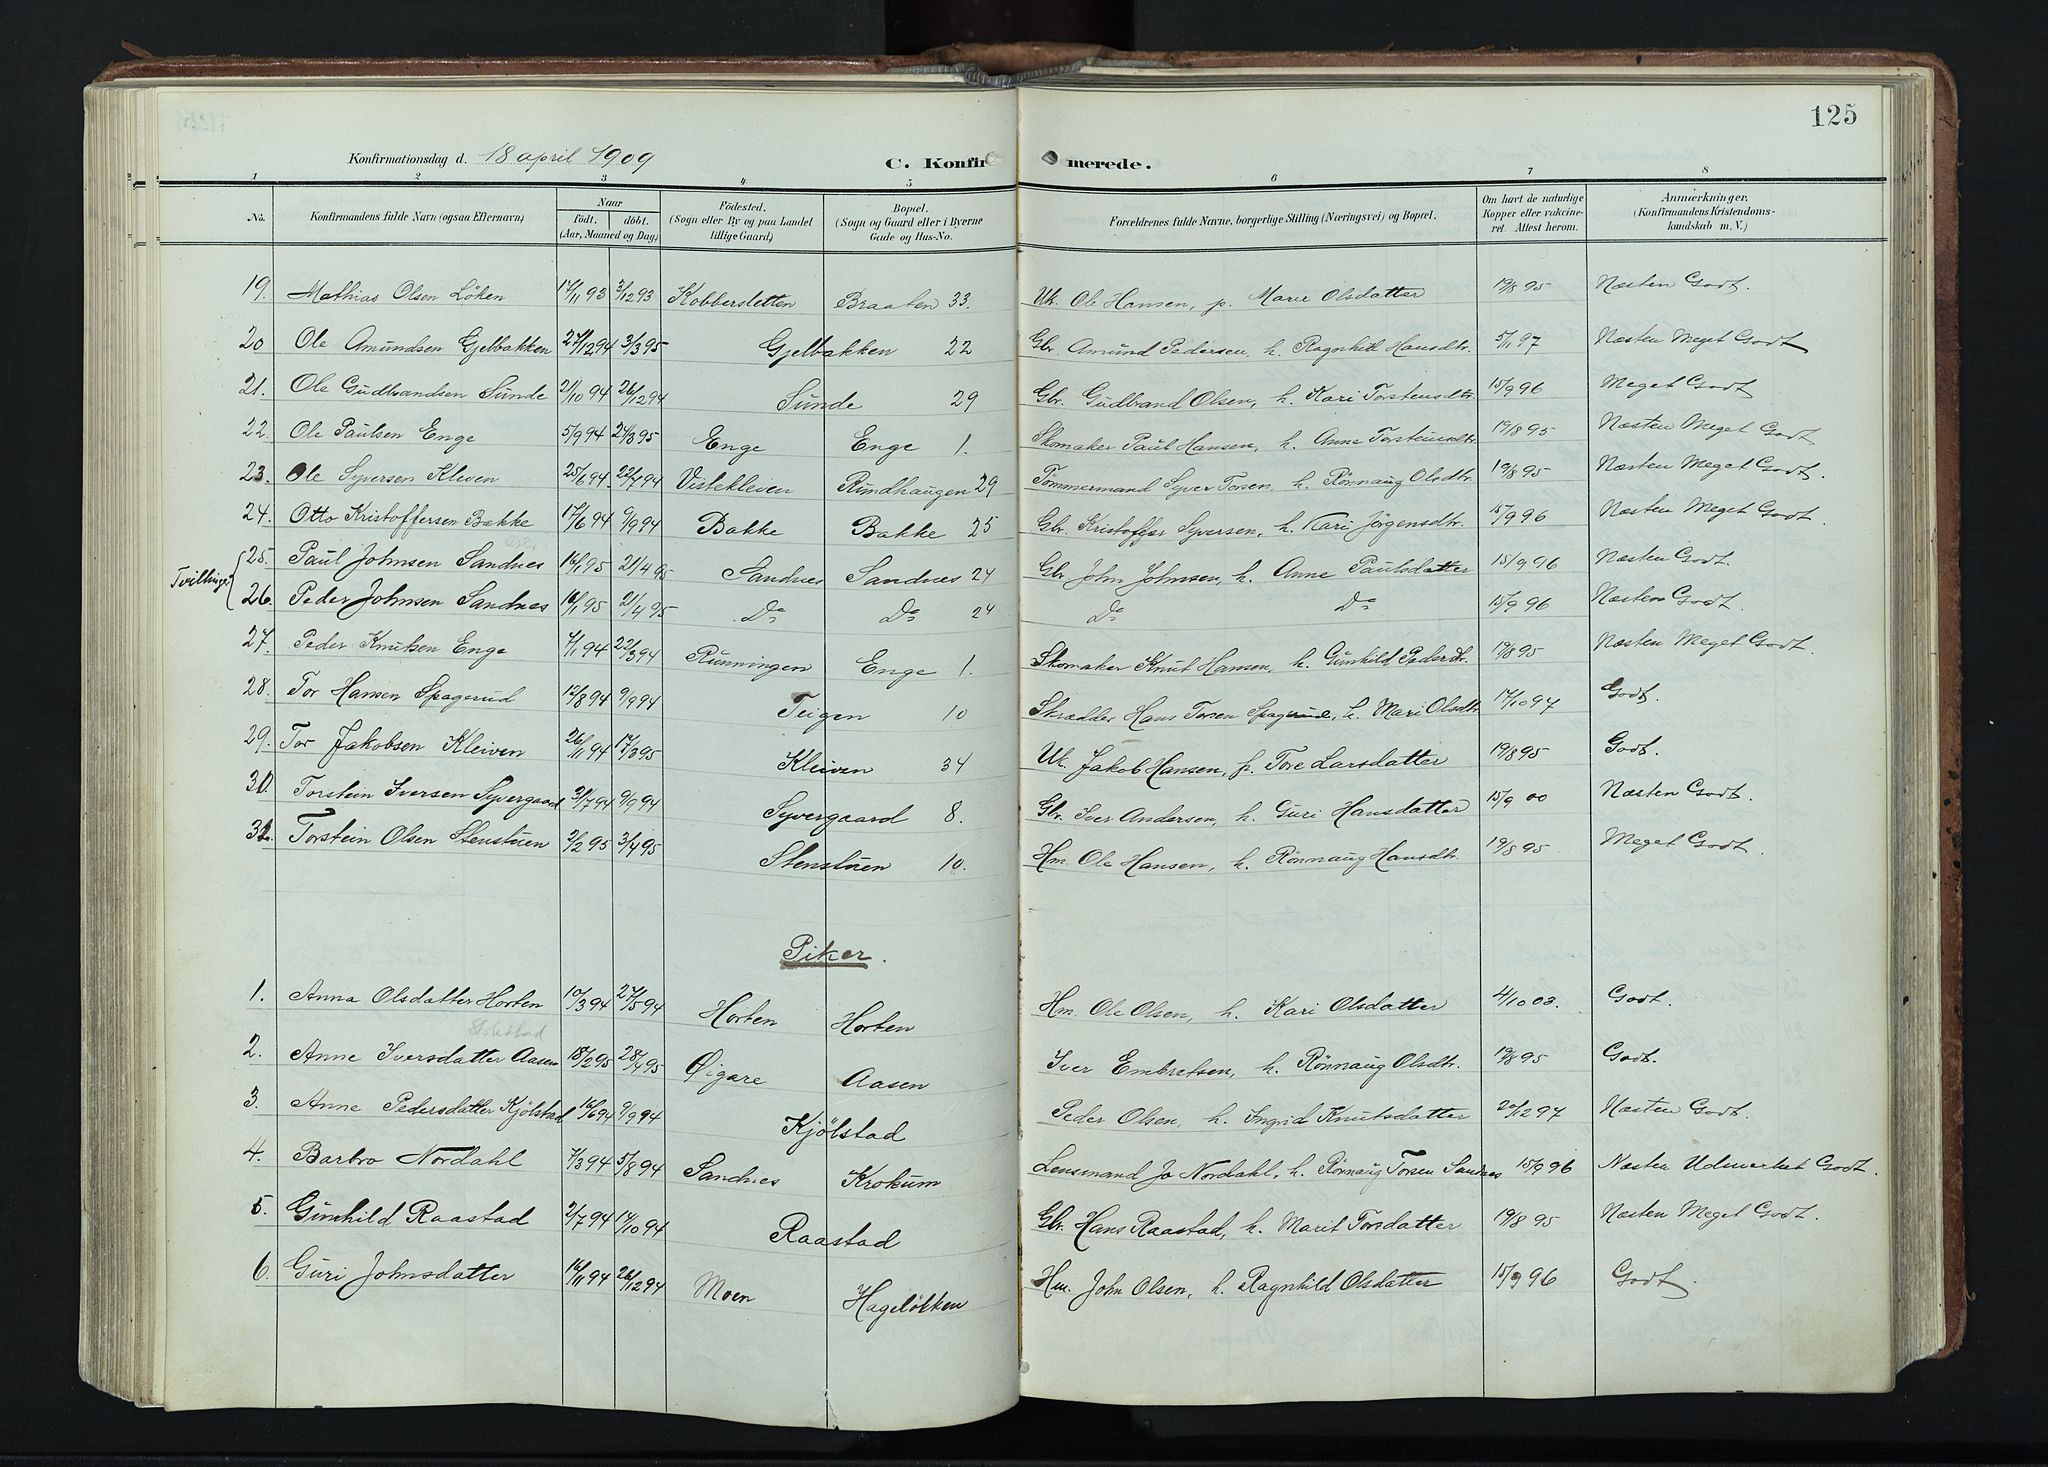 125
Konfirmationsdag d. 18 april 1909 C. Konfirmerede.
1 2 3 4 5 6 7 8
No. Konfirmandens fulde Navn (ogsaa Efternavn) Naar født, døbt. (Aar, Maaned og Dag) Fødested. (Sogn eller By og paa Landet tillige Gaard) Bopæl. (Sogn og Gaard eller i Byerne Gade og Hus-No. Forældrenes fulde Navne, borgerlige Stilling (Næringsvei) og Bopæl. Om havt de naturlige Kopper eller vakcineret. Attest herom. Anmærkninger. (Konfirmandens Kristendomskundskab m. V.)
19. Mathias Olsen Löken 17/11 93 3/12 93 Kobbersletten Braaten 33. Uk. Ole Hansen, p. Marie Olsdatter 19/8 95 Næsten Godt.
20 Ole Amundsen Gjelbakken 27/12 94 3/3 95 Gjelbakken 22 Gbr. Amund Pedersen, h. Ragnhild Hansdtr. 5/11 97 Næsten Meget Godt
21. Ole Gudbrandsen Sunde 21/10 94 26/12 94 Sunde 29 Gbr. Gudbrand Olsen, h. Kari Torstensdtr. 15/9 96 Meget Godt
22. Ole Paulsen Enge 5/9 94 24/3 95 Enge Enge 1. Skomaker Paul Hansen, h. Anne Torsteinsdtr. 19/8 95 Næsten Meget Godt
23. Ole Syversen Kleven 25/6 94. 22/7 94 Vistekleven Rundhaugen 29 Tømmermand Syver Torsen, h. Rønnaug Olsdtr. 19/8 95 Næsten Meget Godt.
24. Otto Kristoffersen Bakke 17/6 94 9/9 94 Bakke Bakke 25 Gbr. Kristoffer Syversen, h. Kari Jørgensdtr. 15/9 96 Næsten Meget Godt.
Tvillinger
25. Paul Johnsen Sandnes 16/1 95 21/4 95 Sandnes Sandnes 24 Gbr John Johnsen, h. Anne Paulsdatter 15/9 96 Næsten Godt.
26. Peder Johnsen Sandnes 16/1 95 21/4 95 Do Do 24 Do Do 15/9 96 Næsten Godt.
27. Peder Knutsen Enge 7/1 94 22/3 94 Runningen Enge 1. Skomaker Knut Hansen, h. Gunhild Pedersdtr. 19/8 95 Næsten Meget Godt.
28. Tor Hansen Spagerud 12/8 94 9/9 94 Teigen 10 Skrædder Hans Torsen Spagerud, h. Mari Olsdtr 17/10 97 Godt.
29. Tor Jakobsen Kleiven 26/11 94 17/3 95 Kleiven 34 Uk. Jakob Hansen, p. Tore Larsdatter 19/8 95 Godt.
30. Torstein Iversen Syvergaard 31/7 94 9/9 94 Syvergaard 8. Gbr. Iver Andersen, h. Guri Hansdatter 15/9 00 Næsten Godt.
31. Torstein Olsen Stenstuen 2/2 95 3/4 95 Stenstuen 10. Hm. Ole Hansen, h. Rønnaug Hansdtr. 19/8 95 Meget Godt.
Piker.
1. Anna Olsdatter Horten 10/3 94 27/5 94 Horten Horten Hm. Ole Olsen, h. Kari Olsdatter 4/10 03. Godt.
2. Anne Iversdatter Aasen 18/2 95 28/4 95 Øigare Aasen Iver Embretsen, h. Rønnaug Olsdtr. 19/8 95 Godt.
3. Anne Pedersdatter Kjölstad 16/6 94 9/9 94 Kjölstad Peder Olsen, h. Ingrid Knutsdatter 20/12 97 Næsten Godt.
4. Barbro Nordahl 7/3 94 5/8 94 Sandnes Krokum Lensmand Jo Nordahl, h. Rønnaug Torsen Sandnes 15/9 96 Næsten Udmerket Godt.
5. Gunhild Raastad 2/7 94 14/10 94 Raastad Gbr. Hans Raastad, h. Marit Torsdatter 19/8 95 Næsten Meget Godt.
6. Guri Johnsdatter 16/11 94 26/12 94 Moen Hageløkken Hm. John Olsen, h. Ragnhild Olsdatter 15/9 96 Godt.